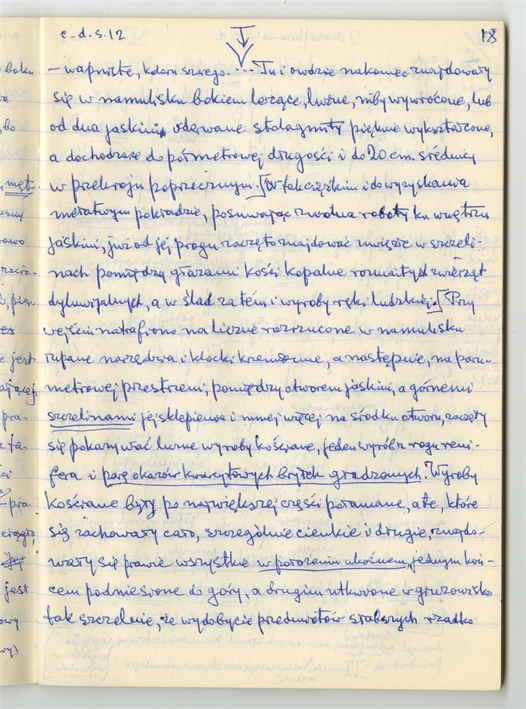 c.d.s.12
18
– wapniste, koloru szarego.... Tu i owdzie nakoniec znajdowały
się w namulisku bokiem leżące, luźne, niby wywrócone, lub
od dna jaskini, oderwane stalagmity pięknie wykształcone,
a dochodzące do półmetrowej długości i do 20 cm. średnicy
w przekroju poprzecznym. W tak ciężkim i do wyzyskania
mozolnym pokładzie, posuwając zwolna roboty ku wnętrzu
jaskini, już od jej progu zaczęto znajdować uwięzłe w szczeli-
nach pomiędzy głazami kości kopalne rozmaitych zwierząt
dyluwijalnych, a w ślad za tém i wyroby ręki ludzkiej. Przy
wejściu natrafiono na liczne rozrzucone w namulisku
łupane narzędzia i klocki krzemienne, a następnie, na paru-
metrowej przestrzeni, pomiędzy otworem jaskini, a górnemi
szczelinami jej sklepienia i mniej więcej na środku otworu, zaczęły
się pokazywać liczne wyroby kościane, jeden wyrób z rogu reni-
fera i parę okazów kwarcytowych bryłek gładzonych. Wyroby
kościane były po największej części połamane, a te, które
się zachowały cało, szczególnie cienkie i długie, znajdo-
wały się prawie wszystkie w położeniu ukośnem, jednym koń-
cem podniesione do góry, a drugim utkwione w gruzowisko
tak szczelnie, że wydobycie przedmiotów słabszych rzadko